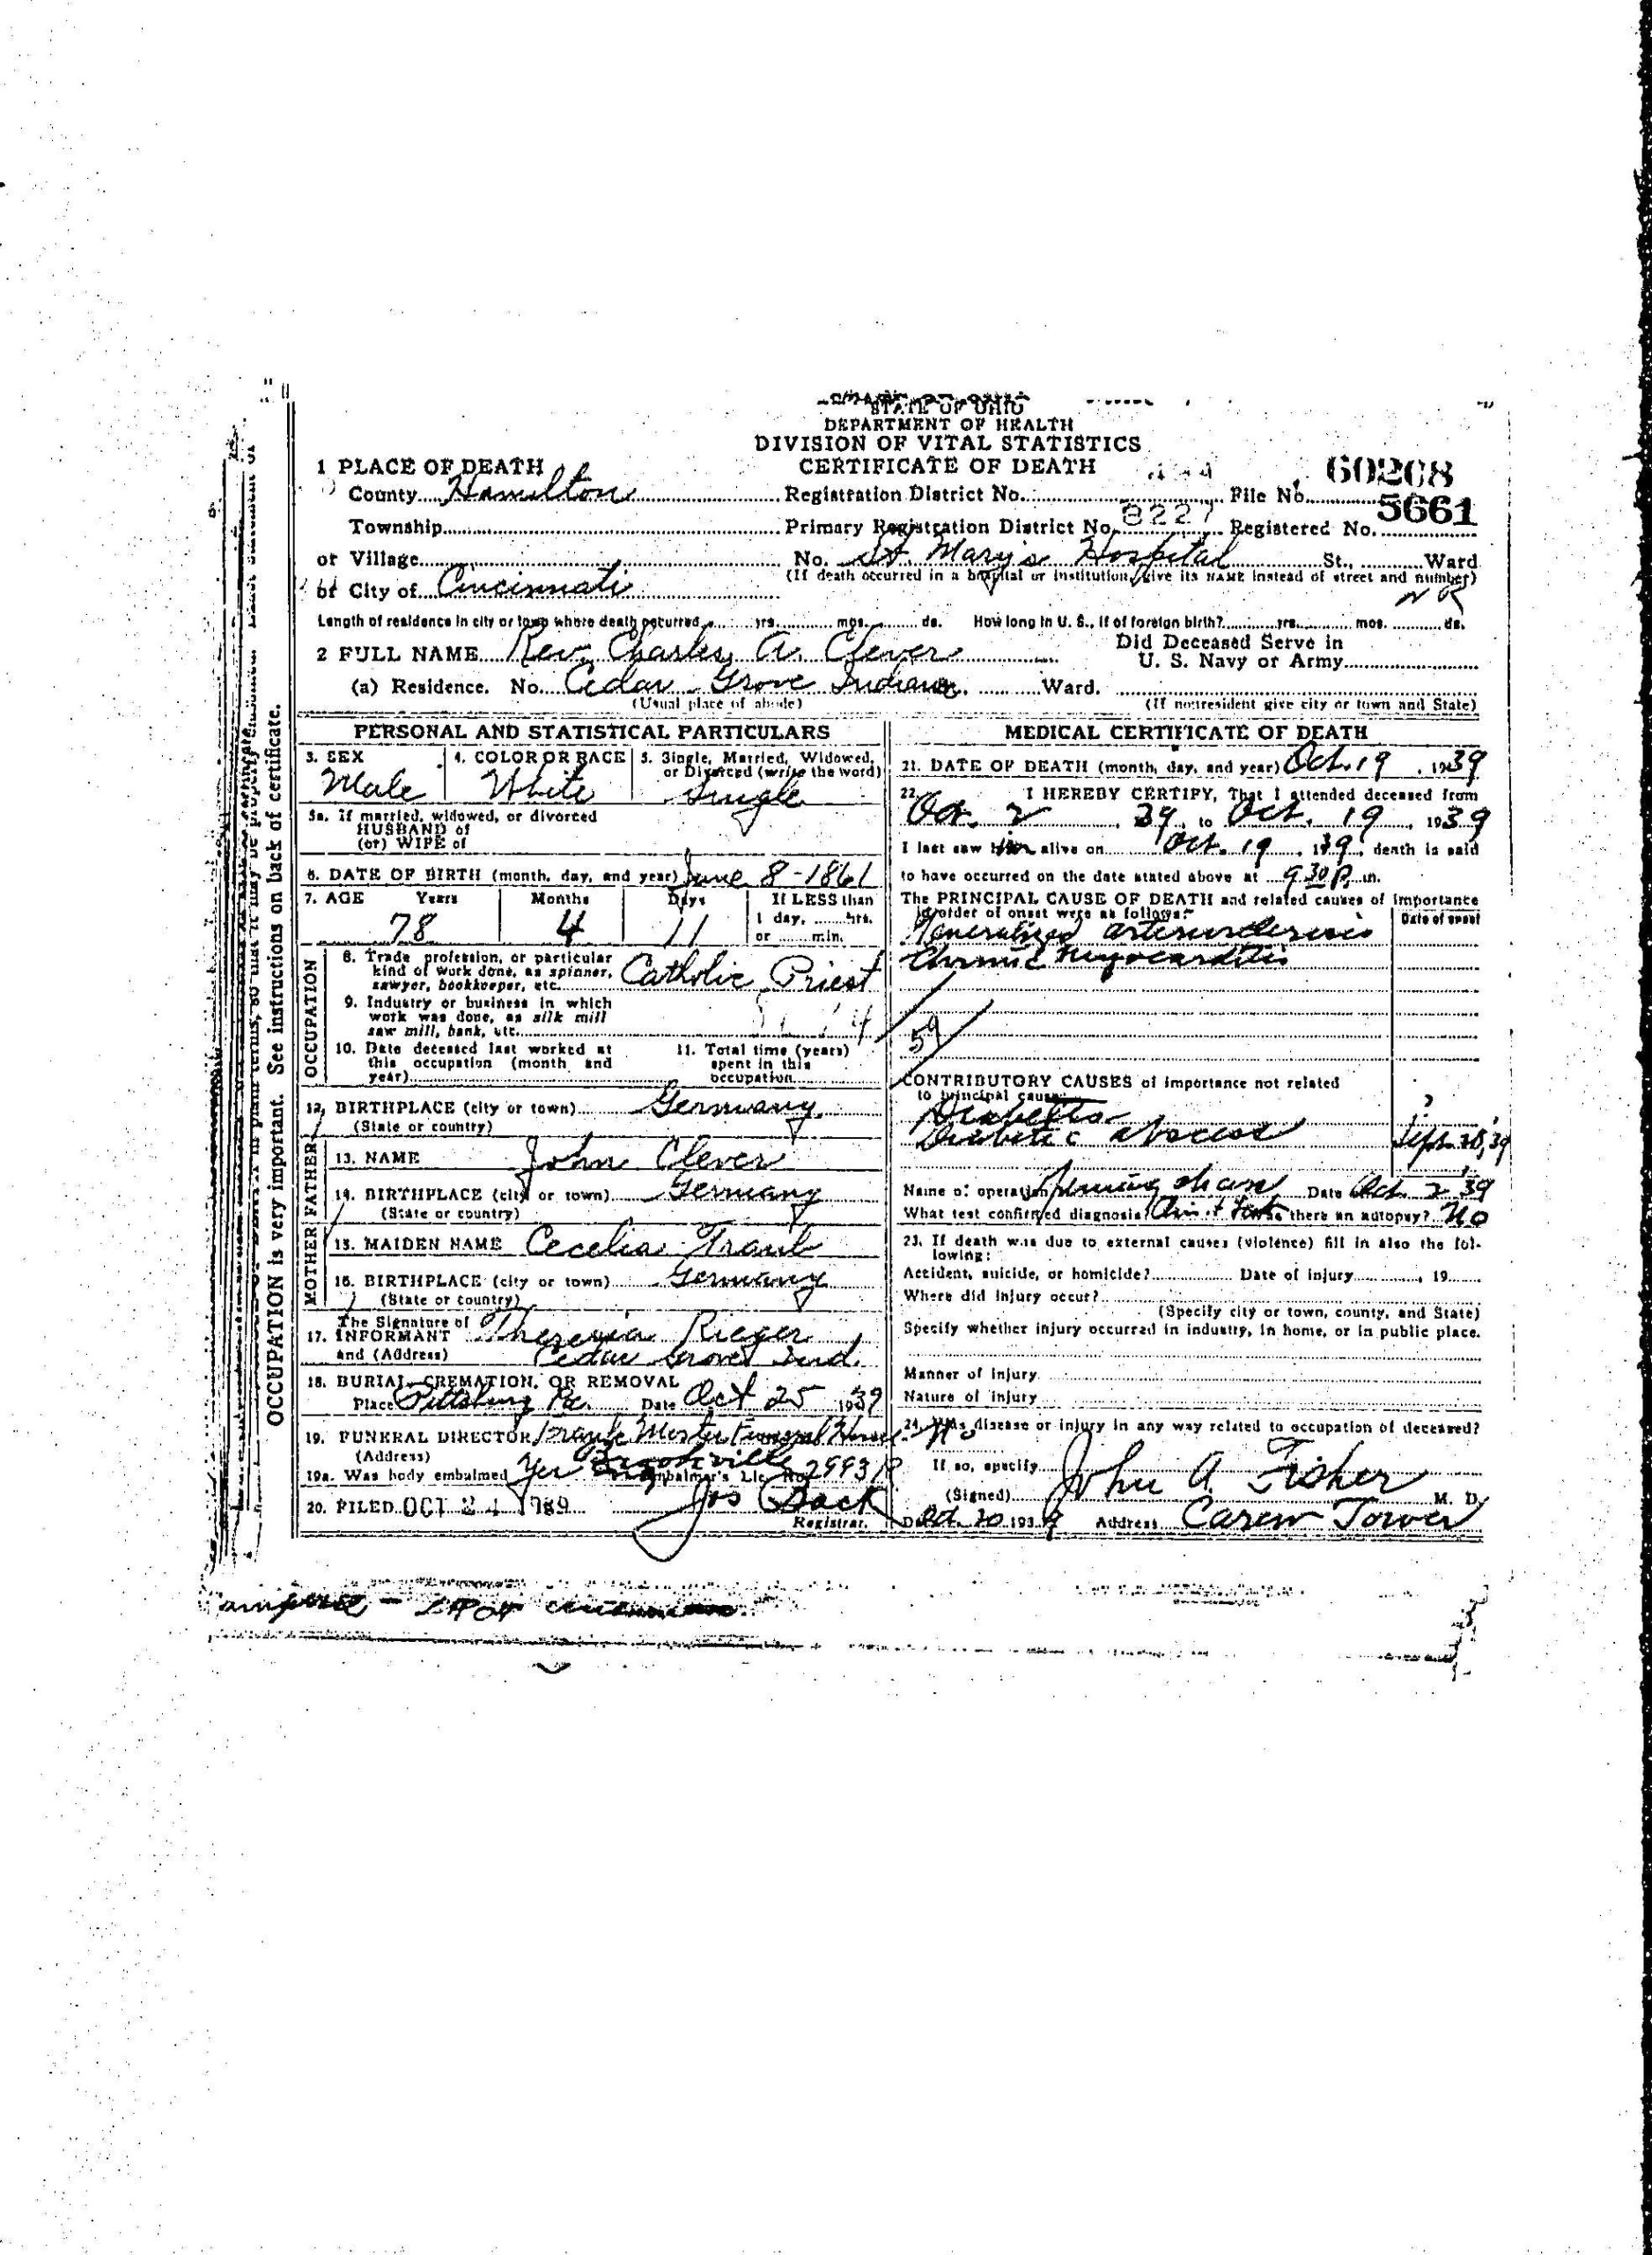 STATE OF OHIO
DEPARTMENT OF HEALTH
DIVISION OF VITAL STATISTICS
CERTIFICATE OF DEATH
1 PLACE OF DEATH
County Hamilton Registration District No. File No. 60208
Township Primary Registration District No. 8227 Registered No. 5661
or Village No. St. Mary's Hospital St., Ward
(If death occurred in a hospital or institution, give its NAME instead of street and number)
or City of Cincinnati
N R
Length of residence in city or town where death occurred yrs. mos. ds. How long in U. S., if of foreign birth? yrs. mos. ds.
2 FULL NAME Rev. Charles A. Clever Did Deceased Serve in U. S. Navy or Army
(a) Residence. No. Cedar Grove Indiana Ward.
(Usual place of abode) (If nonresident give city or town and State)
PERSONAL AND STATISTICAL PARTICULARS
3. SEX Male
4. COLOR OR RACE White
5. Single, Married, Widowed, or Divorced (write the word) Single
5a. If married, widowed, or divorced
HUSBAND of
(or) WIFE of
6. DATE OF BIRTH (month, day, and year) June 8-1861
7. AGE Years Months Days If LESS than
78 4 11 1 day, hrs.
or min.
OCCUPATION
8. Trade, profession, or particular
kind of work done, as spinner,
sawyer, bookkeeper, etc. Catholic Priest
9. Industry or business in which
work was done, as silk mill
saw mill, bank, etc.
10. Date deceased last worked at
this occupation (month and
year)
11. Total time (years)
spent in this
occupation
12. BIRTHPLACE (city or town) Germany
(State or country)
FATHER
13. NAME John Clever
14. BIRTHPLACE (city or town) Germany
(State or country)
MOTHER
15. MAIDEN NAME Cecelia Traub
16. BIRTHPLACE (city or town) Germany
(State or country)
The Signature of
17. INFORMANT Theresia Rieger
and (Address) Cedar Grove Ind.
18. BURIAL, CREMATION, OR REMOVAL
Place Pittsburg Pa. Date Oct 25 1939
19. FUNERAL DIRECTOR Funeral Home
(Address) Brookville
19a. Was body embalmed Yes Embalmer's Lic. No.
20. FILED OCT 24 1939
Registrar.
MEDICAL CERTIFICATE OF DEATH
21. DATE OF DEATH (month, day, and year) Oct. 19, 1939
22. I HEREBY CERTIFY, That I attended deceased from
Oct. 2, 39, to Oct. 19, 1939
I last saw him alive on Oct. 19, 139, death is said
to have occurred on the date stated above at 9 30 P. m.
The PRINCIPAL CAUSE OF DEATH and related causes of importance
in order of onset were as follows: Date of onset
Generalized arteriosclerosis
Chronic Myocarditis
59
CONTRIBUTORY CAUSES of importance not related
to principal cause:
Diabetes ?
Diabetic abscess Sept. 20, 39
Name of operation Date Oct. 2 39
What test confirmed diagnosis? Was there an autopsy? No
23. If death was due to external causes (violence) fill in also the fol-
lowing:
Accident, suicide, or homicide? Date of injury , 19
Where did injury occur?
(Specify city or town, county, and State)
Specify whether injury occurred in industry, in home, or in public place.
Manner of injury
Nature of injury
24. Was disease or injury in any way related to occupation of deceased?
No
If so, specify
(Signed) John A. Fisher M. D.
Date Oct. 20 1939 Address Carew Tower
OCCUPATION is very important. See instructions on back of certificate.